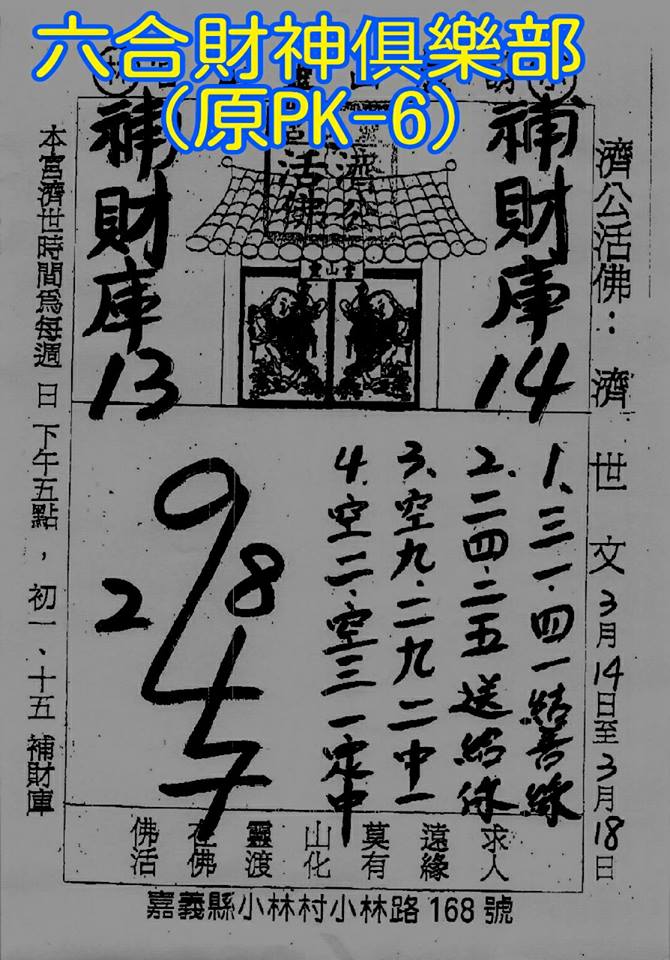 六合財神俱樂部
(原PK-6)
濟公活佛：濟世文3月14日至3月18日
補財庫14
濟公
活佛
補財庫13
1、三一、四一結善緣
2、二四、二五送給你
3、空九、二九二中一
4、空二、空三一定中
9
8
2
4
7
求人
遠緣
莫有
山化
靈渡
在佛
佛活
本宮濟世時間為每週日下午五點，初一、十五補財庫
嘉義縣小林村小林路168號